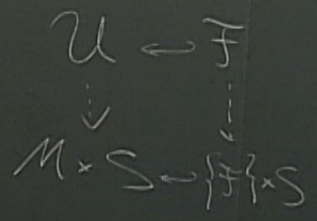 𝒰 ↩ ℱ
M × S ↩ {ℱ} × S